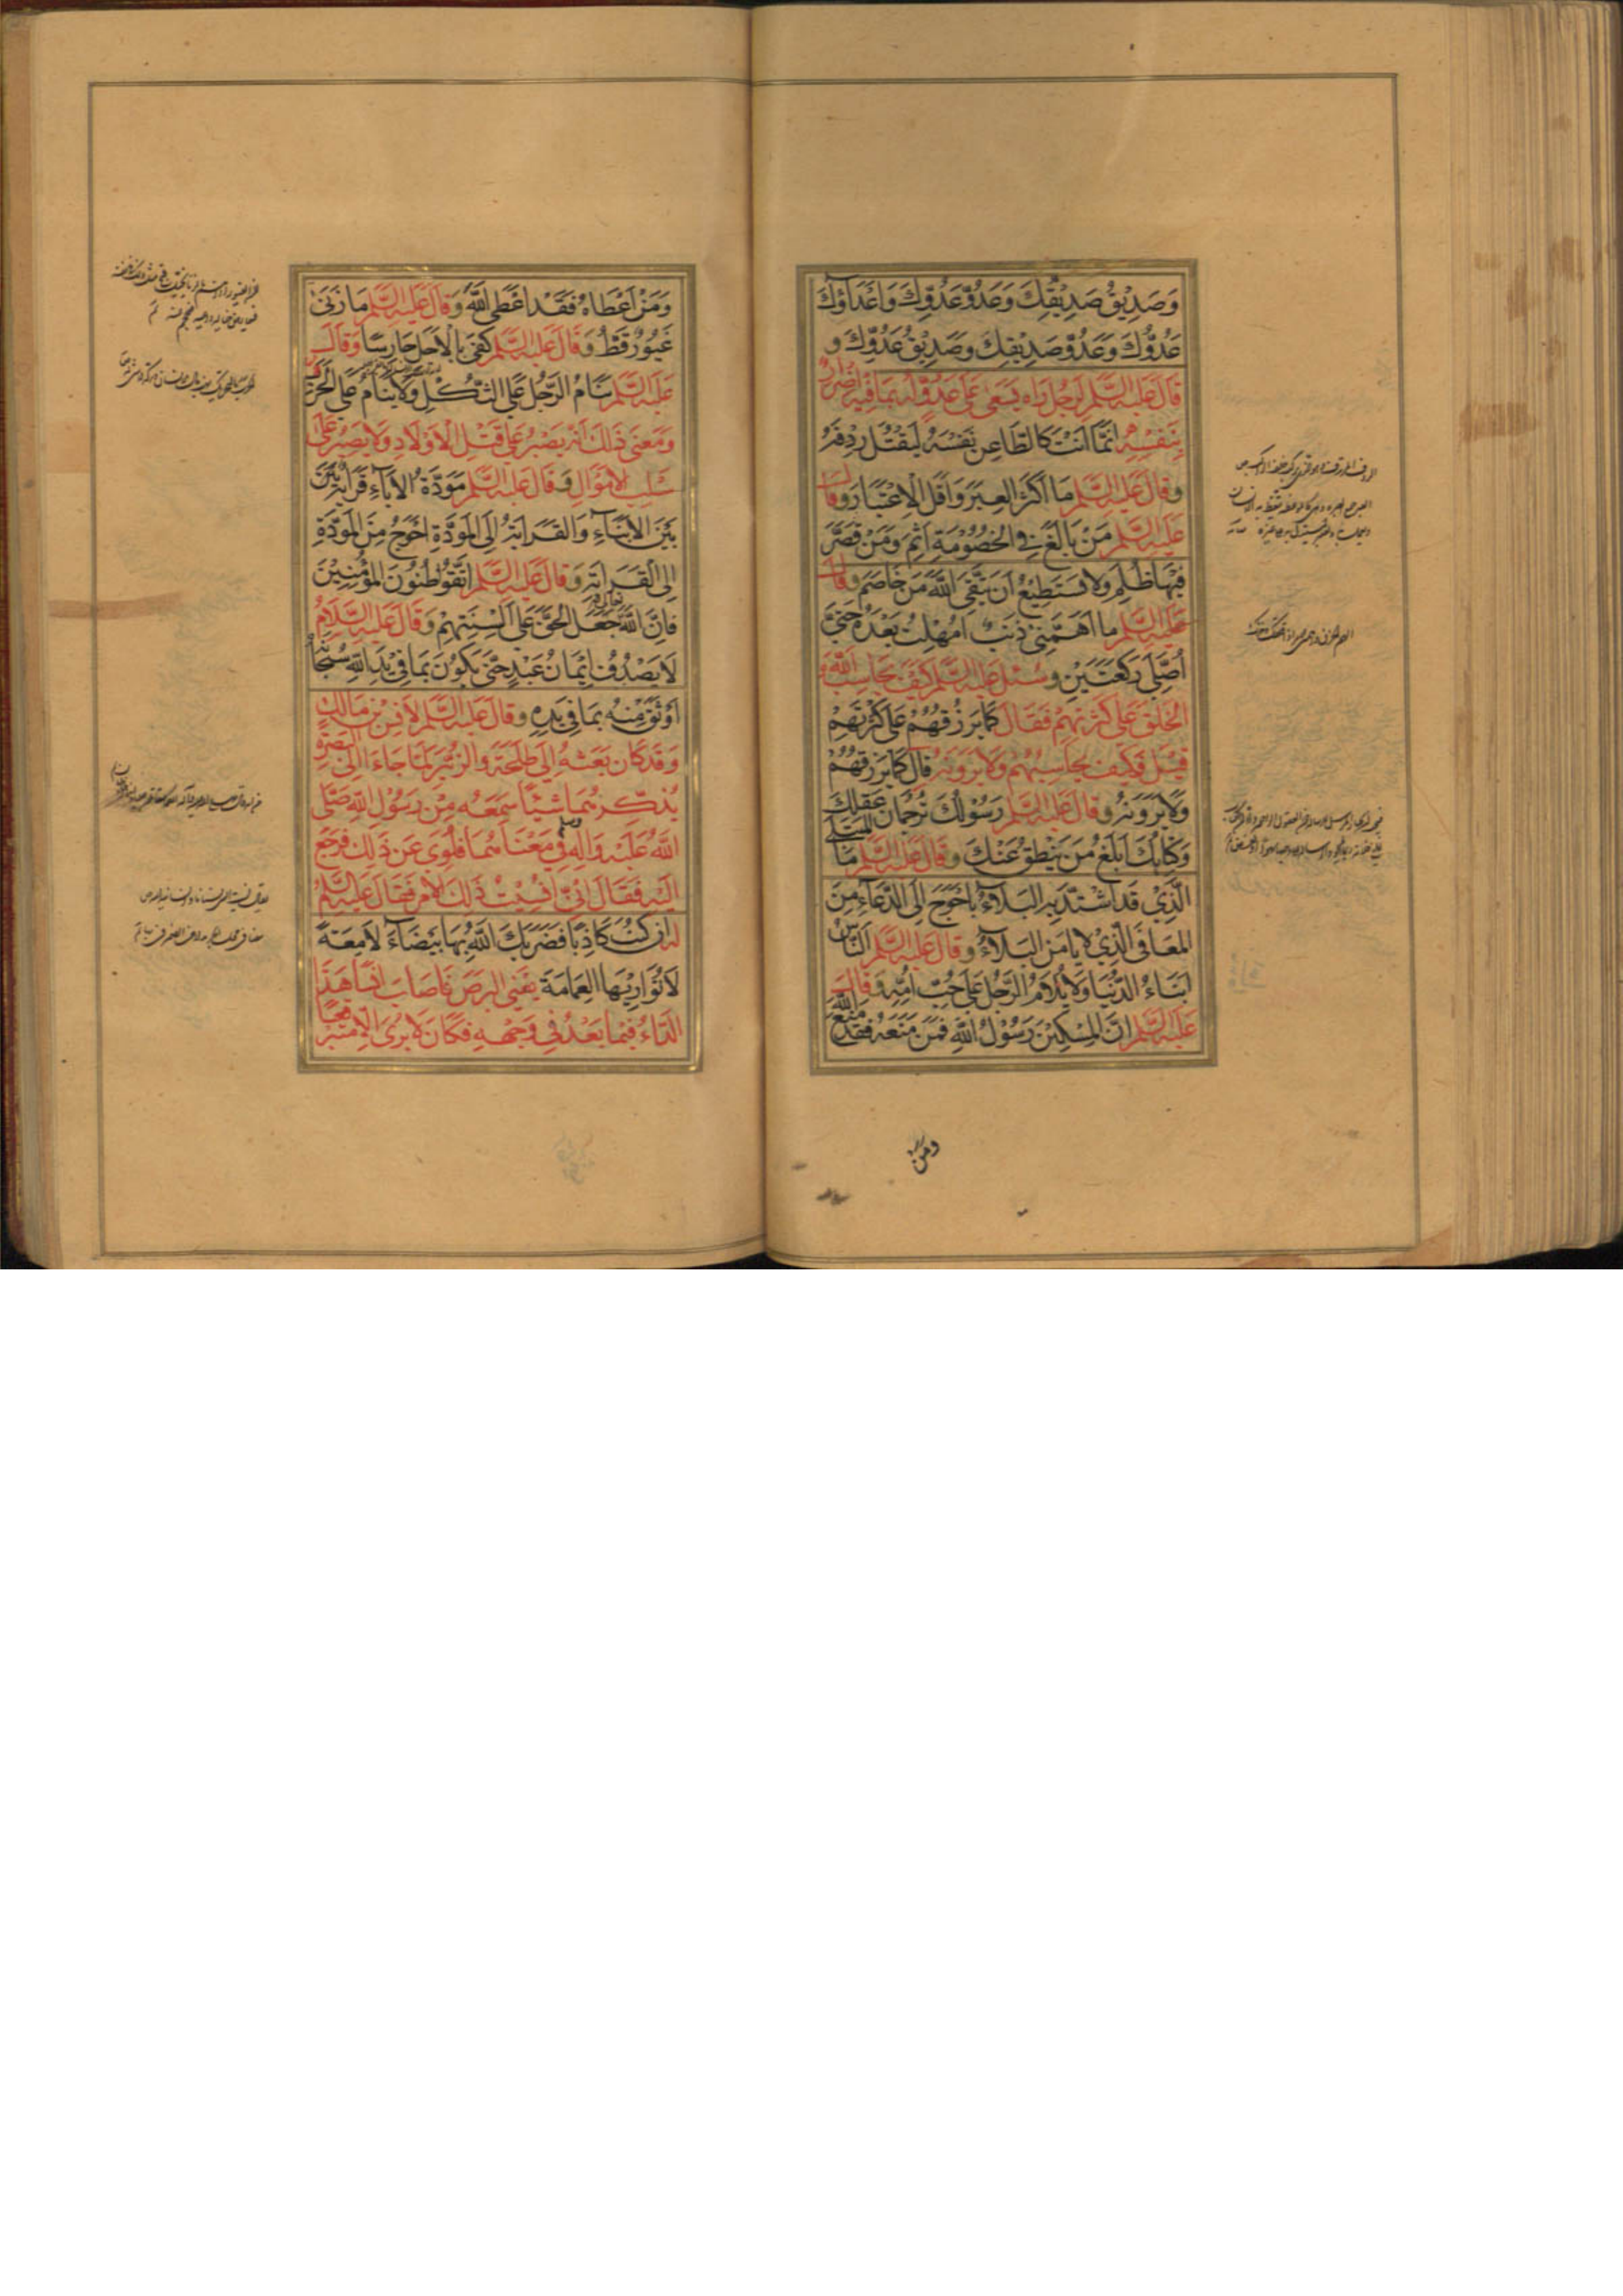 وَصَدِيْقُ صَدِيْقِكَ وَعَدُوُّ عَدُوِّكَ وَاَعْدَاؤُكَ
عَدُوُّكَ وَعَدُوُّ صَدِيْقِكَ وَصَدِيْقُ عَدُوِّكَ وَ
قَالَ عَلَيْهِ السَّلَمُ لِرَجُلٍ رَاه يَسْعَى عَلَى عَدُوٍّ لَهُ بِمَا فِيْهِ اِضْرَارٌ
بِنَفْسِهِ اِنَّمَا اَنْتَ كَالطَّاعِنِ نَفْسَهُ لِيَقْتُلَ رِدْفَهُ
وَقَالَ عَلَيْهِ السَّلَمُ مَا اَكْثَرَ الْعِبَرَ وَاَقَلَّ الْاِعْتِبَارَ وَقَالَ
عَلَيْهِ السَّلَمُ مَنْ بَالَغَ فِي الْخُصُوْمَةِ اَثِمَ وَمَنْ قَصَّرَ
فِيْهَا ظُلِمَ وَلَا يَسْتَطِيْعُ اَنْ يَتَّقِيَ اللَّهَ مَنْ خَاصَمَ وَقَالَ
عَلَيْهِ السَّلَمُ مَا اَهَمَّنِي ذَنْبٌ اُمْهِلْتُ بَعْدَهُ حَتَّى
اُصَلِّيَ رَكْعَتَيْنِ وَسُئِلَ عَلَيْهِ السَّلَمُ كَيْفَ يُحَاسِبُ اللَّهُ
الْخَلْقَ عَلَى كَثْرَتِهِمْ فَقَالَ كَمَا يَرْزُقُهُمْ عَلَى كَثْرَتِهِمْ
قِيْلَ فَكَيْفَ يُحَاسِبُهُمْ وَلَا يَرَوْنَهُ قَالَ كَمَا يَرْزُقُهُمْ
وَلَا يَرَوْنَهُ وَقَالَ عَلَيْهِ السَّلَمُ رَسُوْلُكَ تَرْجُمَانُ عَقْلِكَ
وَكِتَابُكَ اَبْلَغُ مَنْ يَنْطِقُ عَنْكَ وَقَالَ عَلَيْهِ السَّلَمُ مَا الْمُبْتَلَى
الَّذِيْ قَدِ اشْتَدَّ بِهِ الْبَلَاءُ بِاَحْوَجَ اِلَى الدُّعَاءِ مِنَ
الْمُعَافَى الَّذِيْ لَا يَامَنُ الْبَلَاءُ وَقَالَ عَلَيْهِ السَّلَمُ اَلنَّاسُ
اَبْنَاءُ الدُّنْيَا وَلَا يُلَامُ الرَّجُلُ عَلَى حُبِّ اُمِّهِ وَقَالَ
عَلَيْهِ السَّلَمُ اِنَّ الْمِسْكِيْنَ رَسُوْلُ اللَّهِ فَمَنْ مَنَعَهُ فَقَدْ مَنَعَ اللَّهَ
وَمَنْ
وَمَنْ اَعْطَاهُ فَقَدْ اَعْطَى اللَّهَ وَقَالَ عَلَيْهِ السَّلَمُ مَا زَنَى
غَيُوْرٌ قَطُّ وَقَالَ عَلَيْهِ السَّلَمُ كَفَى بِالْاَجَلِ حَارِسًا وَقَالَ
عَلَيْهِ السَّلَمُ يَنَامُ الرَّجُلُ عَلَى الثُّكْلِ وَلَا يَنَامُ عَلَى الْحَرَبِ
وَمَعْنَى ذَلِكَ اَنَّهُ يَصْبِرُ عَلَى قَتْلِ الْاَوْلَادِ وَلَا يَصْبِرُ عَلَى
سَلْبِ الْاَمْوَالِ وَقَالَ عَلَيْهِ السَّلَمُ مَوَدَّةُ الْاٰبَاءِ قَرَابَةٌ بَيْنَ
بَيْنَ الْاَبْنَاءِ وَالْقَرَابَةُ اِلَى الْمَوَدَّةِ اَحْوَجُ مِنَ الْمَوَدَّةِ
اِلَى الْقَرَابَةِ وَقَالَ عَلَيْهِ السَّلَمُ اِتَّقُوْا ظُنُوْنَ الْمُؤْمِنِيْنَ
فَاِنَّ اللَّهَ تَعَالَى جَعَلَ الْحَقَّ عَلَى اَلْسِنَتِهِمْ وَقَالَ عَلَيْهِ السَّلَامُ
لَا يَصْدُقُ اِيْمَانُ عَبْدٍ حَتَّى يَكُوْنَ بِمَا فِيْ يَدِ اللَّهِ سُبْحَانَهُ
اَوْثَقَ مِنْهُ بِمَا فِيْ يَدِهِ وَقَالَ عَلَيْهِ السَّلَمُ لِاَنَسِ بْنِ مَالِكٍ
وَقَدْ كَانَ بَعَثَهُ اِلَى طَلْحَةَ وَالزُّبَيْرِ لَمَّا جَاءَا اِلَى الْبَصْرَةِ
يُذَكِّرُهُمَا شَيْئًا سَمِعَهُ مِنْ رَسُوْلِ اللَّهِ صَلَّى
اللَّهُ عَلَيْهِ وَاٰلِهِ وَسَلَّمَ فِيْ مَعْنَاهُمَا فَلَوَى عَنْ ذَلِكَ فَرَجَعَ
اِلَيْهِ فَقَالَ اِنِّيْ اُنْسِيْتُ ذَلِكَ الْاَمْرَ فَقَالَ عَلَيْهِ السَّلَمُ
لَهُ اِنْ كُنْتَ كَاذِبًا فَضَرَبَكَ اللَّهُ بِهَا بَيْضَاءَ لَامِعَةً
لَا تُوَارِيْهَا الْعِمَامَةُ يَعْنِي الْبَرَصَ فَاَصَابَ اَنَسًا هَذَا
الدَّاءُ فِيْمَا بَعْدُ فِيْ وَجْهِهِ فَكَانَ لَا يُرَى اِلَّا مُتَبَرْقِعًا